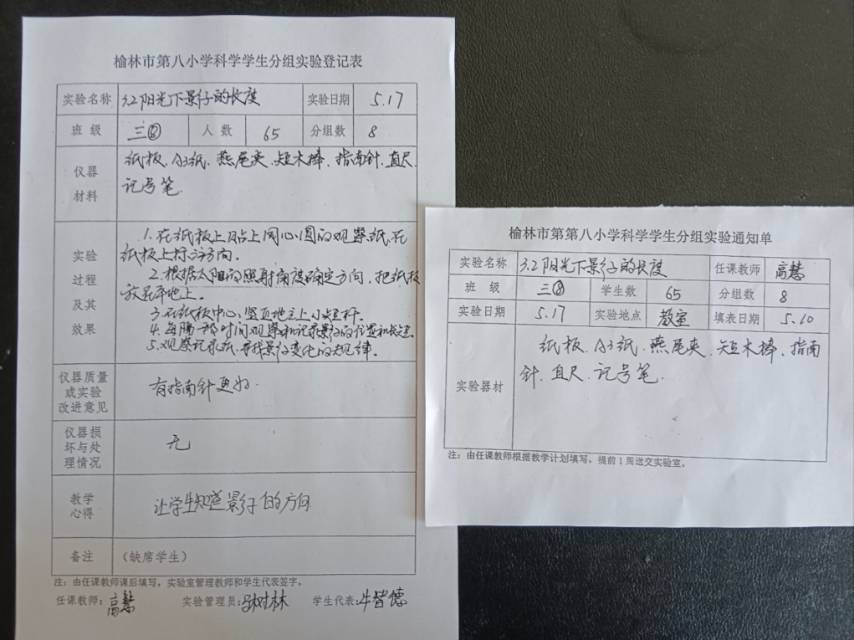 榆林市第八小学科学学生分组实验登记表
实验名称 3.2阳光下影子的长度 实验日期 5.17
班 级 三⑧ 人 数 65 分组数 8
仪器材料 纸板、A3纸、燕尾夹、短木棒、指南针、直尺、
记号笔
实验过程及其效果 1.在纸板上贴上同心圆的观察纸,在
纸板上标注方向。
2.根据太阳的照射角度确定方向,把纸板
放在平地上。
3.在纸板中心,竖直地立上小短杆。
4.每隔一段时间观察和记录影子的位置和长短。
5.观察记录纸,寻找影子变化的规律。
仪器质量或实验改进意见 有指南针更好.
仪器损坏与处理情况 无
教学心得 让学生知道影子的方向
备注 (缺席学生)
注:由任课教师课后填写,实验室管理教师和学生代表签字。
任课教师:高慧 实验管理员: 树林 学生代表:牛皆德
榆林市第第八小学科学学生分组实验通知单
实验名称 3.2阳光下影子的长度 任课教师 高慧
班 级 三⑧ 学生数 65 分组数 8
实验日期 5.17 实验地点 教室 填表日期 5.10
实验器材 纸板、A3纸、燕尾夹、短木棒、指南
针、直尺、记号笔.
注:由任课教师根据教学计划填写,提前1周送交实验室。